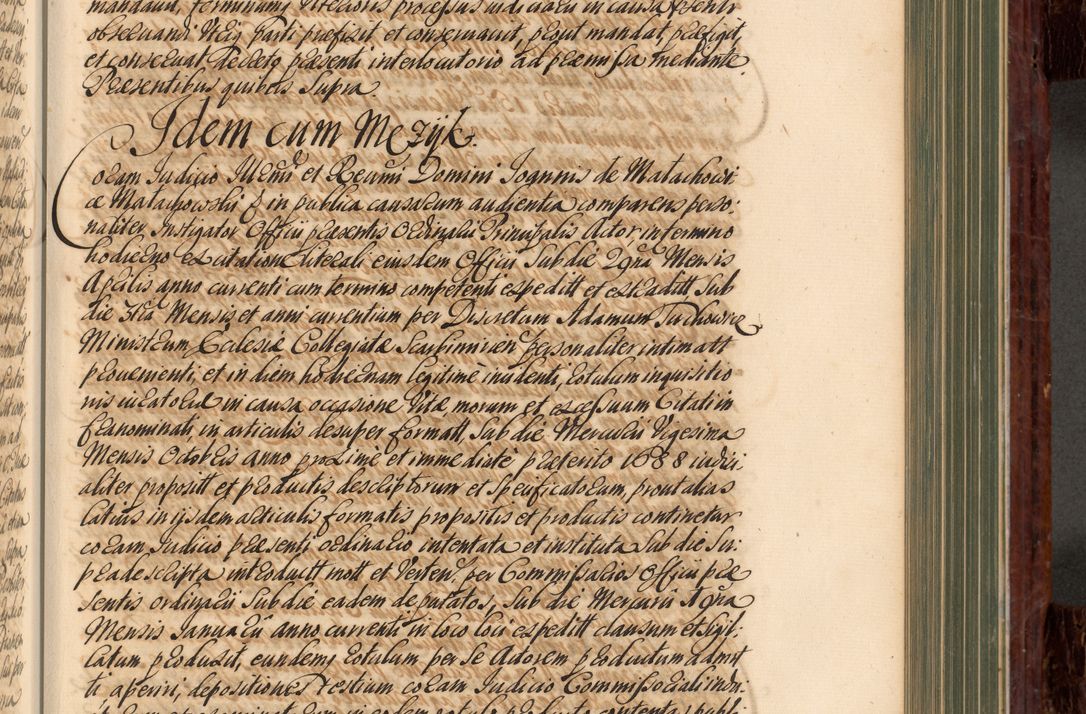 mandavit, terminumq́ ulterioris processus iudiciarii in causa psenti
observandi Utriq Parti prefixit et conservavit, prout mandat, prefigit,
et conservat Decreto presenti interlocutorio ad premissa mediante
Presentibus quibus Supra.
Idem cum Mezijk.
Coram Judicio Illmi et Rdmi Domini Joannis de Małachowi
ce Małachowskij in publica causarum audientia comparens perso:
naliter, Instigator Officij presentis Ordinarii Principalis Actor, in termino
hodierno ex citatione literali eiusdem Officii Sub die 29na Mensis
Aprilis anno currenti cum termino competenti expeditt et extraditt Sub
die Mensis et anni currentium per Discretum Adamum Suchowicz
Ministrum Ecclesiæ Collegiatæ Scarbimirien personaliter intimatt
provenienti, et in diem hodiernam legitimè incidenti, Rotulum inquisitio
nis iuratorie in causa occasione Vitæ, morum et excessuum Citati in
franominati, in articulis desuper formatt, Sub die Mercurii Vigesima
Mensis Octobris anno proximè et immediatè præterito 1688 iudici
aliter propositt et productis descriptorum et Specificatorum, prout alias
latius in ijsdem articulis formatis propositis et productis continetur
coram Judicio præsenti ordinario intentata et instituta Sub die Su:
pradescripta introductt mott et Verten, per Commissarios Officii præ
sentis ordinarii Sub die eadem deputatos, Sub die Mercurii 19na
Mensis Januarii anno currenti in loco loci expeditt clausum et Sigil:
latum produxit, eundemq Rotulum per se Actorem productum admit
ti aperiri, depositiones Testium coram Judicio Commissoriali indu: